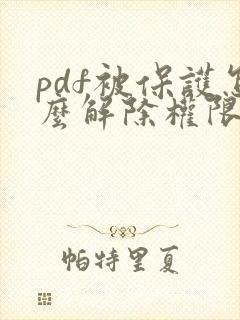 pdf被保護怎
麼解除權限
帕特里夏